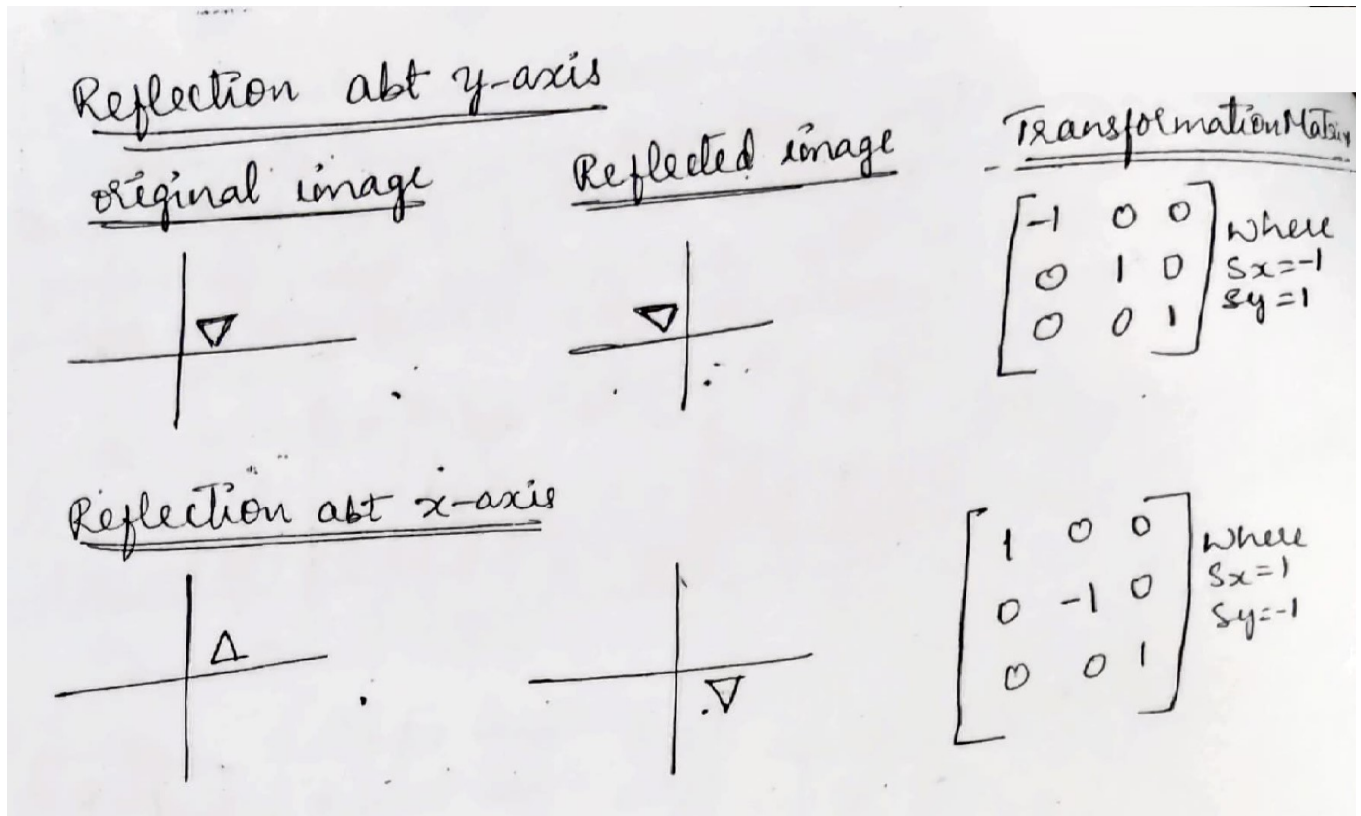 Reflection abt y-axis
original image
Reflected image
Transformation Matrix
-1 0 0
0 1 0
0 0 1
where
Sx=-1
Sy=1
Reflection abt x-axis
1 0 0
0 -1 0
0 0 1
where
Sx=1
Sy=-1